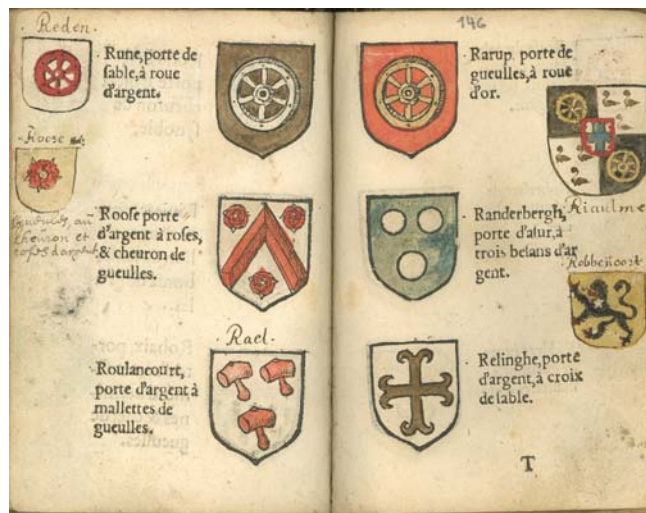 Reden.
Rune, porte de
sable, à roue
d'argent.
Roose
Roose porte
d'argent à roses,
& cheuron de
gueulles.
gueulles, au
cheuron et
roses d'argent
Rael.
Roulancourt,
porte d'argent à
mallettes de
gueulles.
146
Rarup porte de
gueulles, à roue
d'or.
Riaulme
Randerbergh,
porte d'asur, à
trois besans d'ar
gent.
Robbenoort
Relinghe, porte
d'argent, à croix
de sable.
T